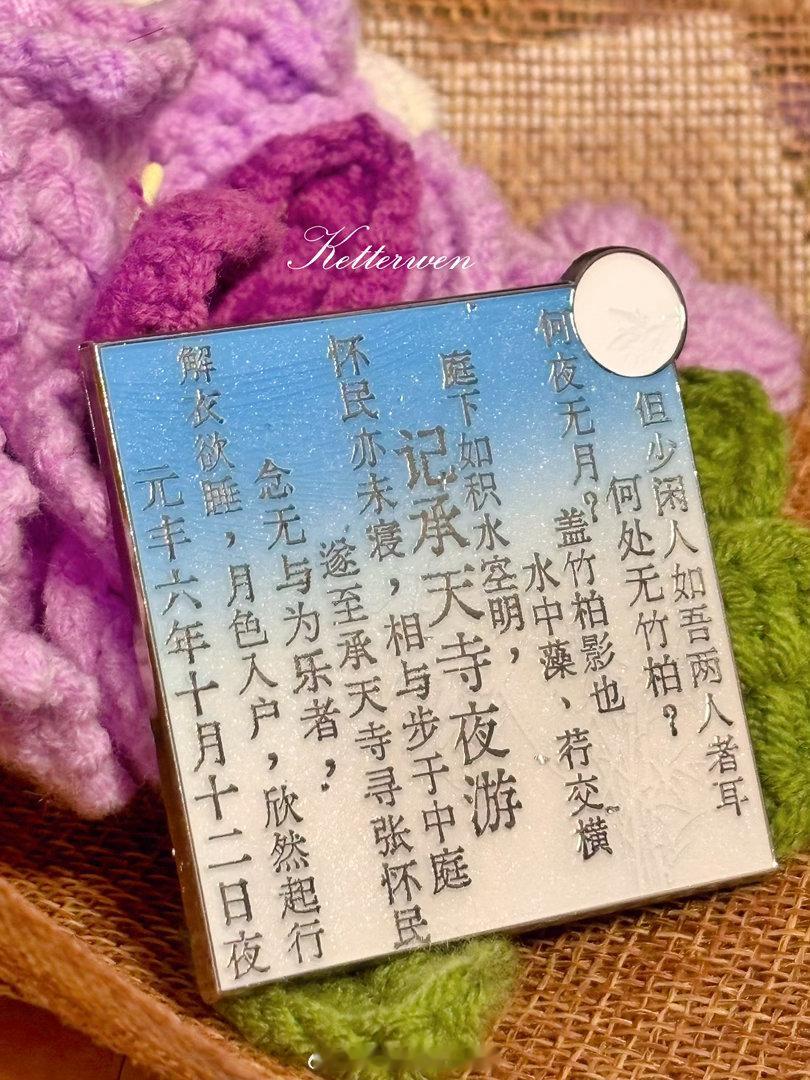 Ketterwen
记承天寺夜游
元丰六年十月十二日夜
解衣欲睡，月色入户，欣然起行
念无与为乐者，
遂至承天寺寻张怀民
怀民亦未寝，相与步于中庭
庭下如积水空明，
水中藻、荇交横
盖竹柏影也
何夜无月？
何处无竹柏？
但少闲人如吾两人者耳